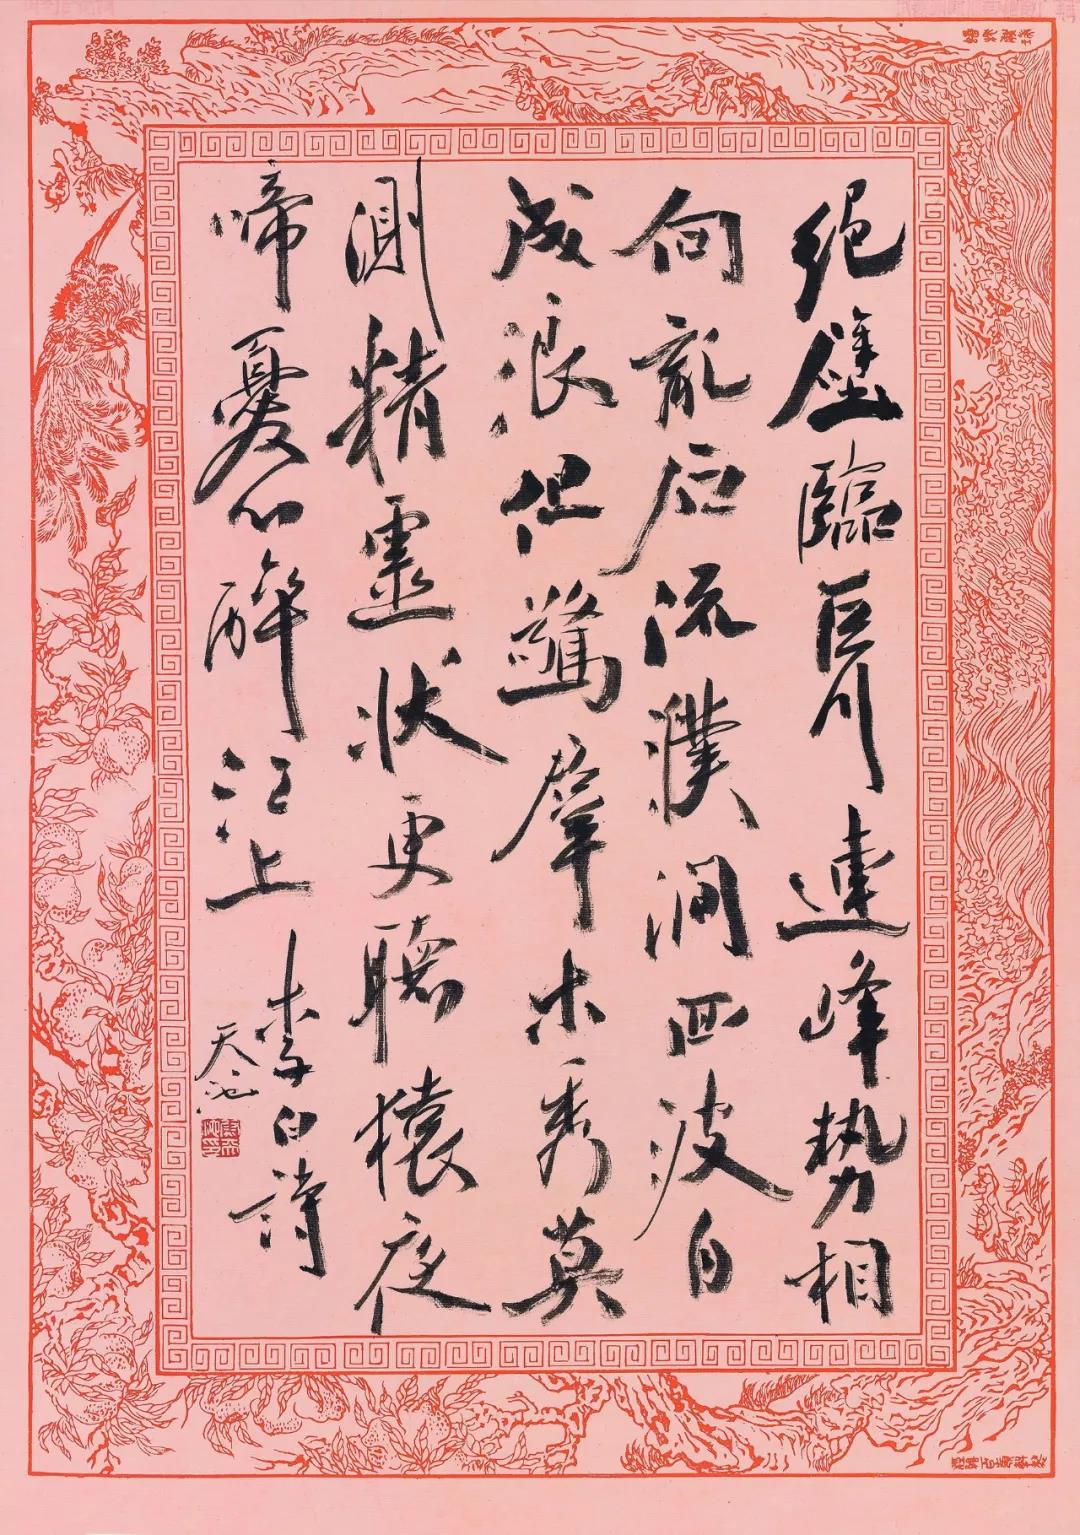 絕壁臨巨川連峰势相
向乱石流濮澗囬波自
成浪但驚羣木秀莫
測精靈状更聽猿夜
啼憂心醉江上 李白詩
天池